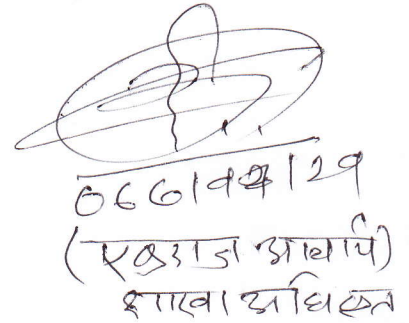 ०६६।१२।२१
(एकराज आचार्य)
शाखा अधिकृत